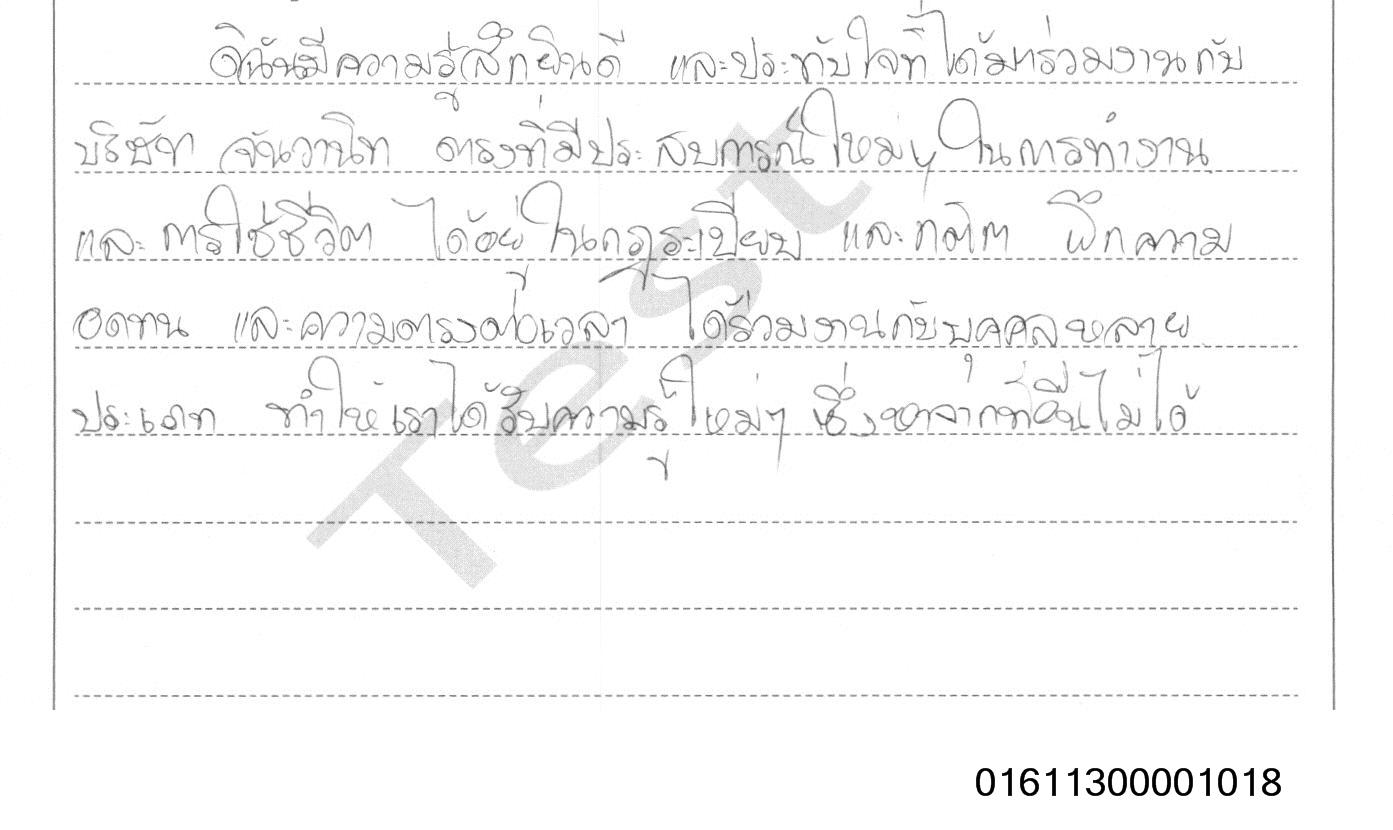 ดิฉันมีความรู้สึกยินดี และประทับใจที่ได้มาร่วมงานกับ
บริษัท จันวานิท ตรงที่มีประสบการณ์ใหม่ๆ ในการทำงาน
และการใช้ชีวิต ได้อยู่ในกฎระเบียบ และกติกา ฝึกความ
อดทน และความตรงต่อเวลา ได้ร่วมงานกับบุคคลหลาย
ประเภท ทำให้เราได้รับความรู้ใหม่ๆ ซึ่งหาจากที่อื่นไม่ได้
Test
01611300001018